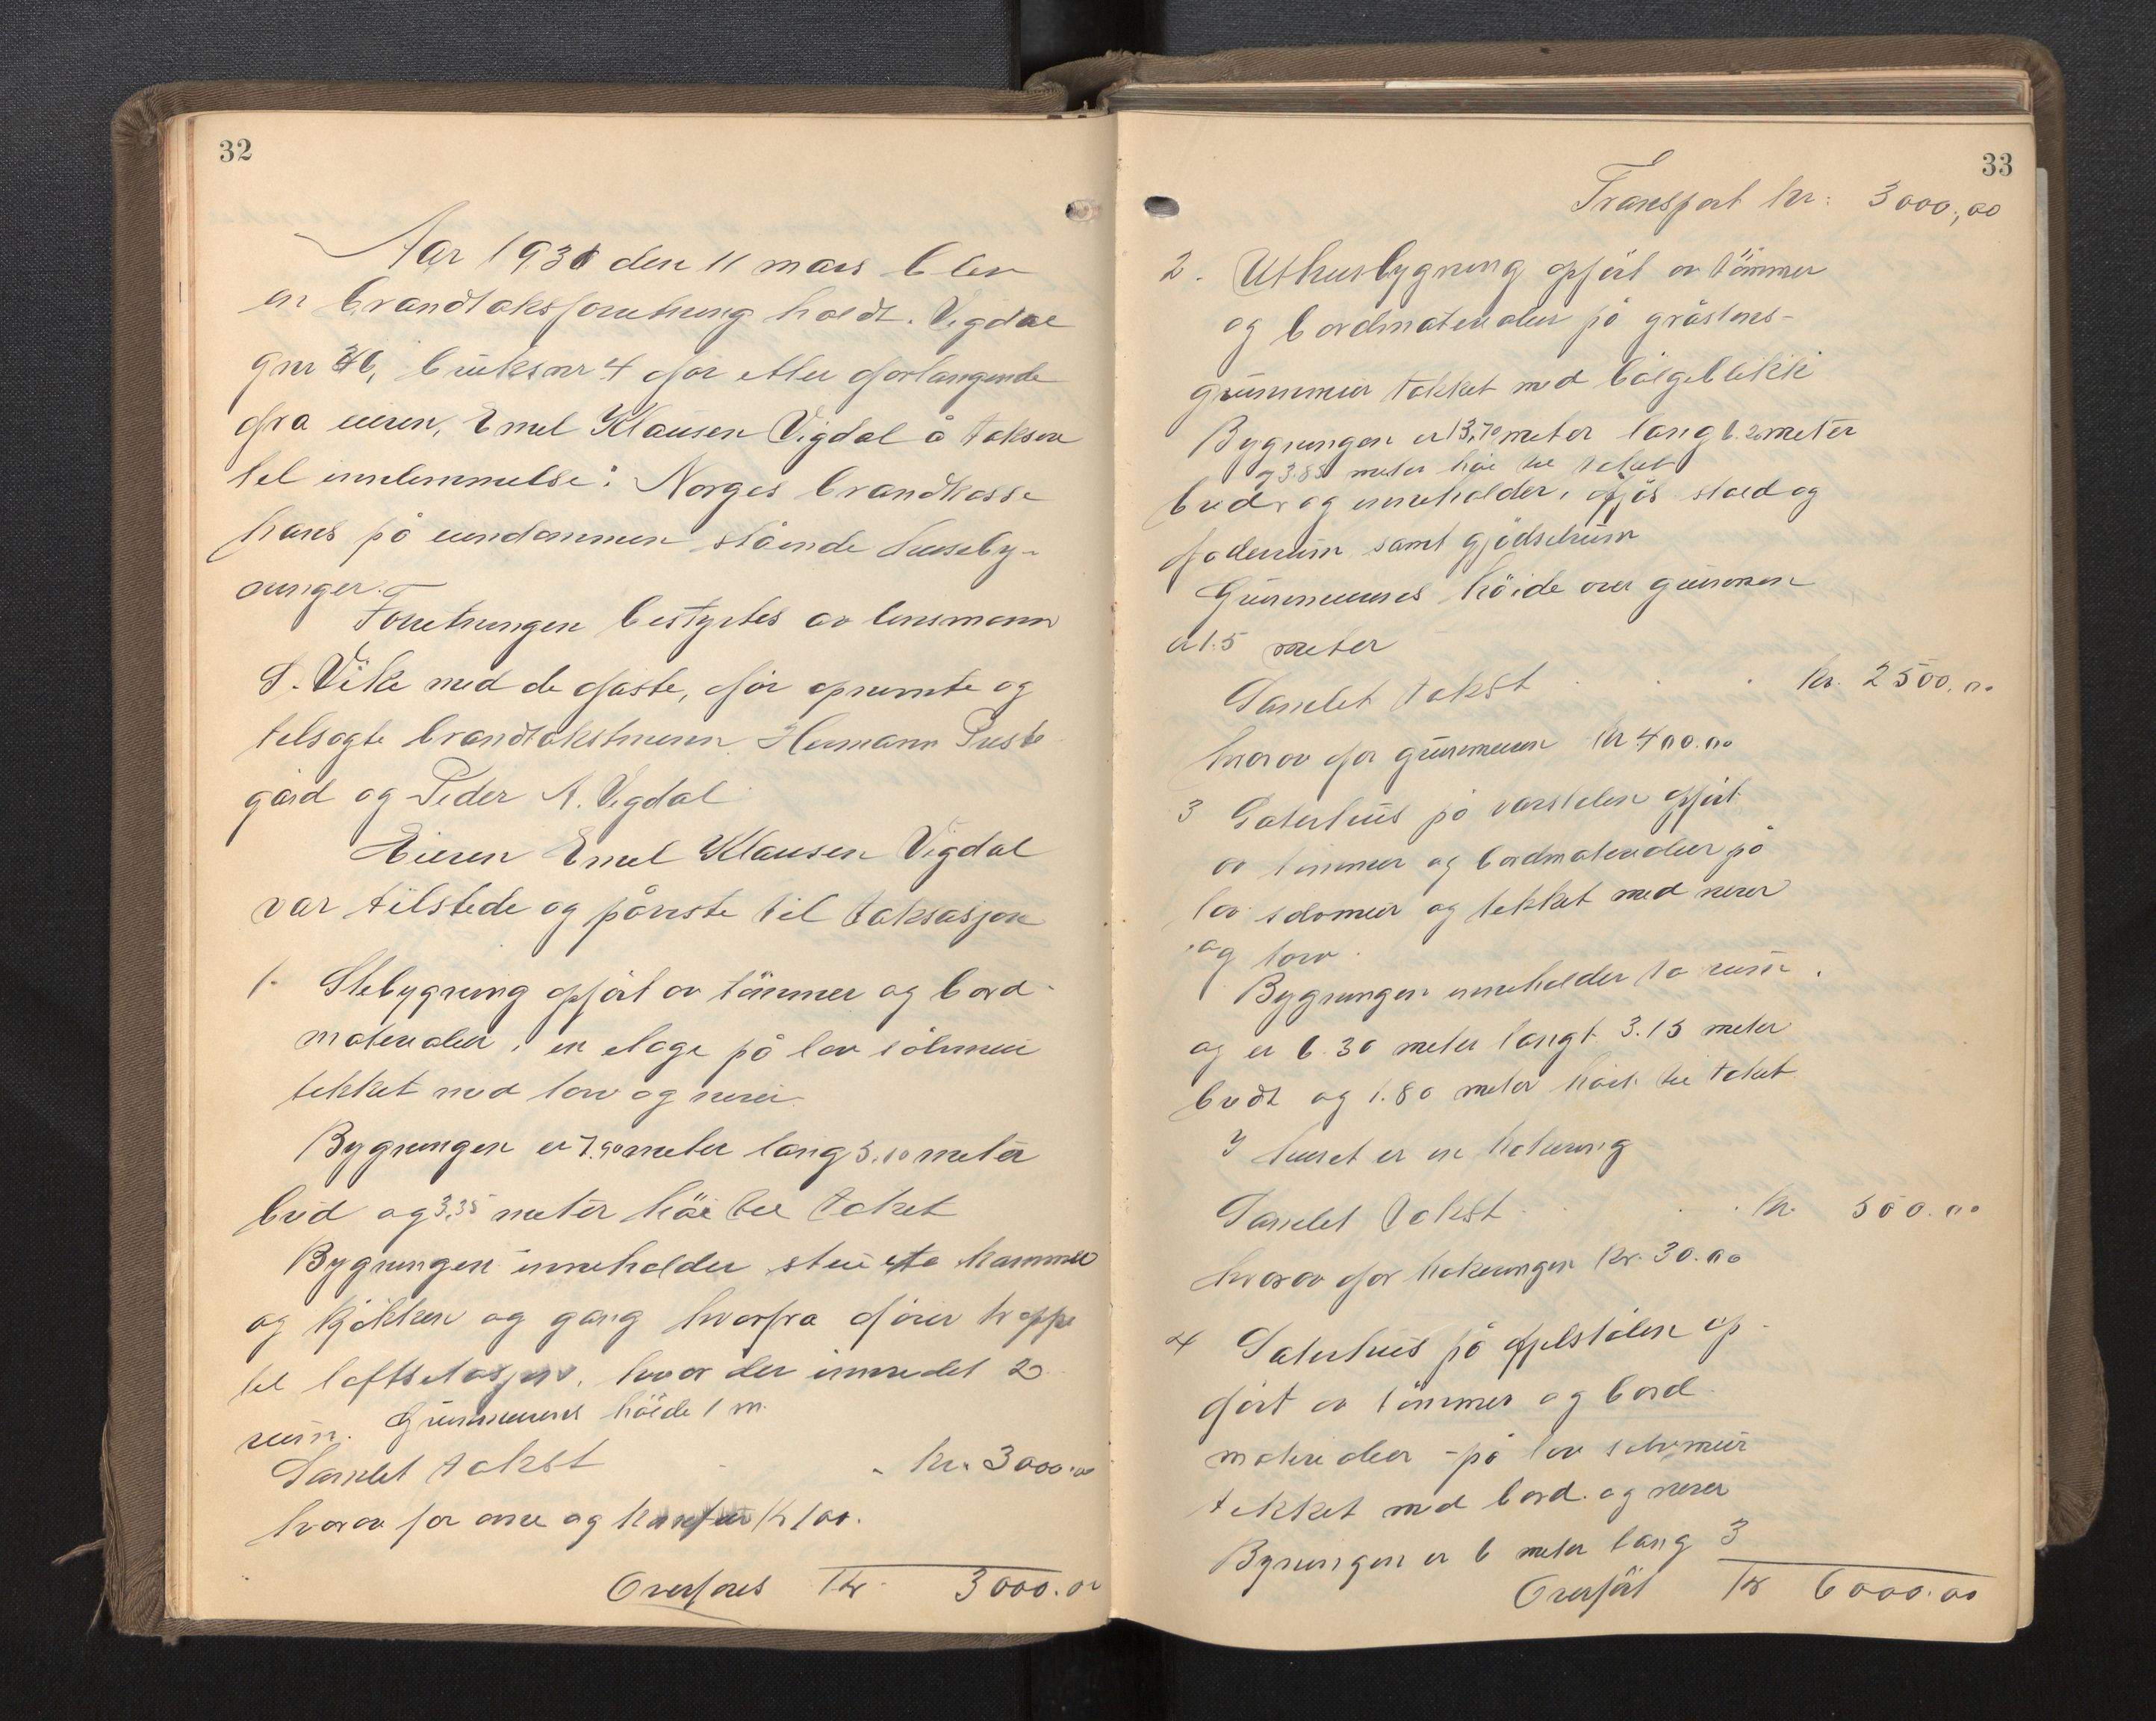 32
Aar 1931 den 11 mars blev
en brandtaksforretning holdt. Vigdal
gnr 36, bruksnr 4 for etter forlangende
fra eieren, Emil Klausen Vigdal å taksere
til innlemmelse i Norges brandkasse
hans på eiendommen stående husebyg-
ninger.
Forretningen bestyrtes av lensmann
S. Vike med de faste, for opnevnte og
tilsagte brandtakstmenn Hermann Preste
gård og Peder A. Vigdal
Eieren Emil Klausen Vigdal
var tilstede og påviste til taksasjon
1. Stebygning opført av tömmer og bord-
materialer i en etage på lav sålemur
tekket med torv og never
Bygningen er 7.90 meter lang 5.10 meter
bred og 3.35 meter höi til taket
Bygningen inneholder stue et kammer
og kjökken og gang hvorfra fører trappe
til loftsetasjen, hvor der innredet 2
rum. Grunnmurens höide 1 m.
Samlet takst kr. 3000.00
hvorav for ovne og komfur kr 100.
Overføres Kr. 3000.00
33
Transport kr: 3000,00
2. Uthusbygning opfört av tömmer
og bordmaterialer på gråstens-
grunnmur takket med bölgeblikk
Bygningen er 13,70 meter lang 6.20 meter
og 3.85 meter höi til taket
bred og inneholder, fjös stald og
foderrum samt gjödselrum
Grunnmurens höide over grunnen
er 1.5 meter
Samlet takst kr. 2500.00
hvorav for grunnmuren kr 400.00
3 Säterhus på vårstölen opfört
av tömmer og bordmaterialer på
lav sålemur og tekket med never
og torv.
Bygningen inneholder to rum.
og er 6.30 meter langt 3.15 meter
bredt og 1.80 meter höit til taket
I huset er en kakovn
Samlet takst kr. 500.00
hvorav for kakovnen kr. 30.00
4 Säterhus på fjelstölen op-
fört av tömmer og bord
materialer på lav sålemur
tekket med bord og never
Bygningen er 6 meter lang 3
Overfört Kr 6000.00